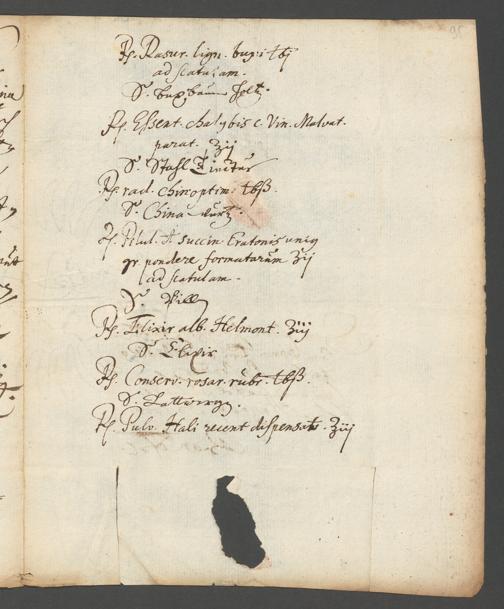 95
℞. Rasur. lign. buxi ℔j
ad scatulam.
S. buxbaum Holtz.
℞. Essent. chalybis c. Vin. Malvat.
parat. ʒij
S. Stahl Tinctur
℞. rad. Chin optim. ℔ß.
S. China wurtz.
℞. Pilul. de succin. Cratonis unius
gr pondere formatarum ʒij
ad scatulam.
S. Pill
℞. Elixir alb. Helmont. ʒiij
S. Elixir
℞. Conserv. rosar. rubr. ℔ß.
S. Lattwerg.
℞. Pulv. Hali recent dispensat. ʒiij